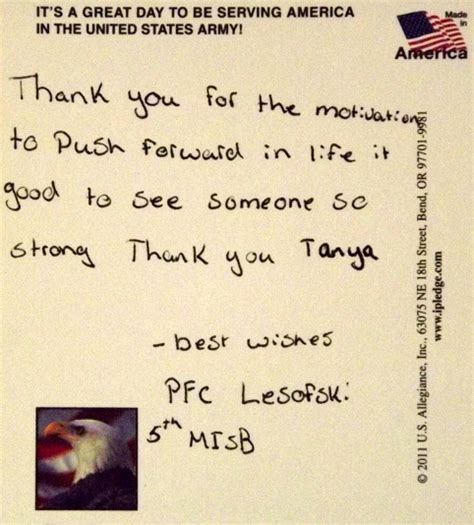 IT'S A GREAT DAY TO BE SERVING AMERICA
IN THE UNITED STATES ARMY!
Made
in
America
Thank you for the motivation
to Push forward in life it
good to see someone so
strong Thank you Tanya
- best wishes
PFC Lesofski
5th MISB
© 2011 U.S. Allegiance, Inc., 63075 NE 18th Street, Bend, OR 97701-9981
www.ipledge.com